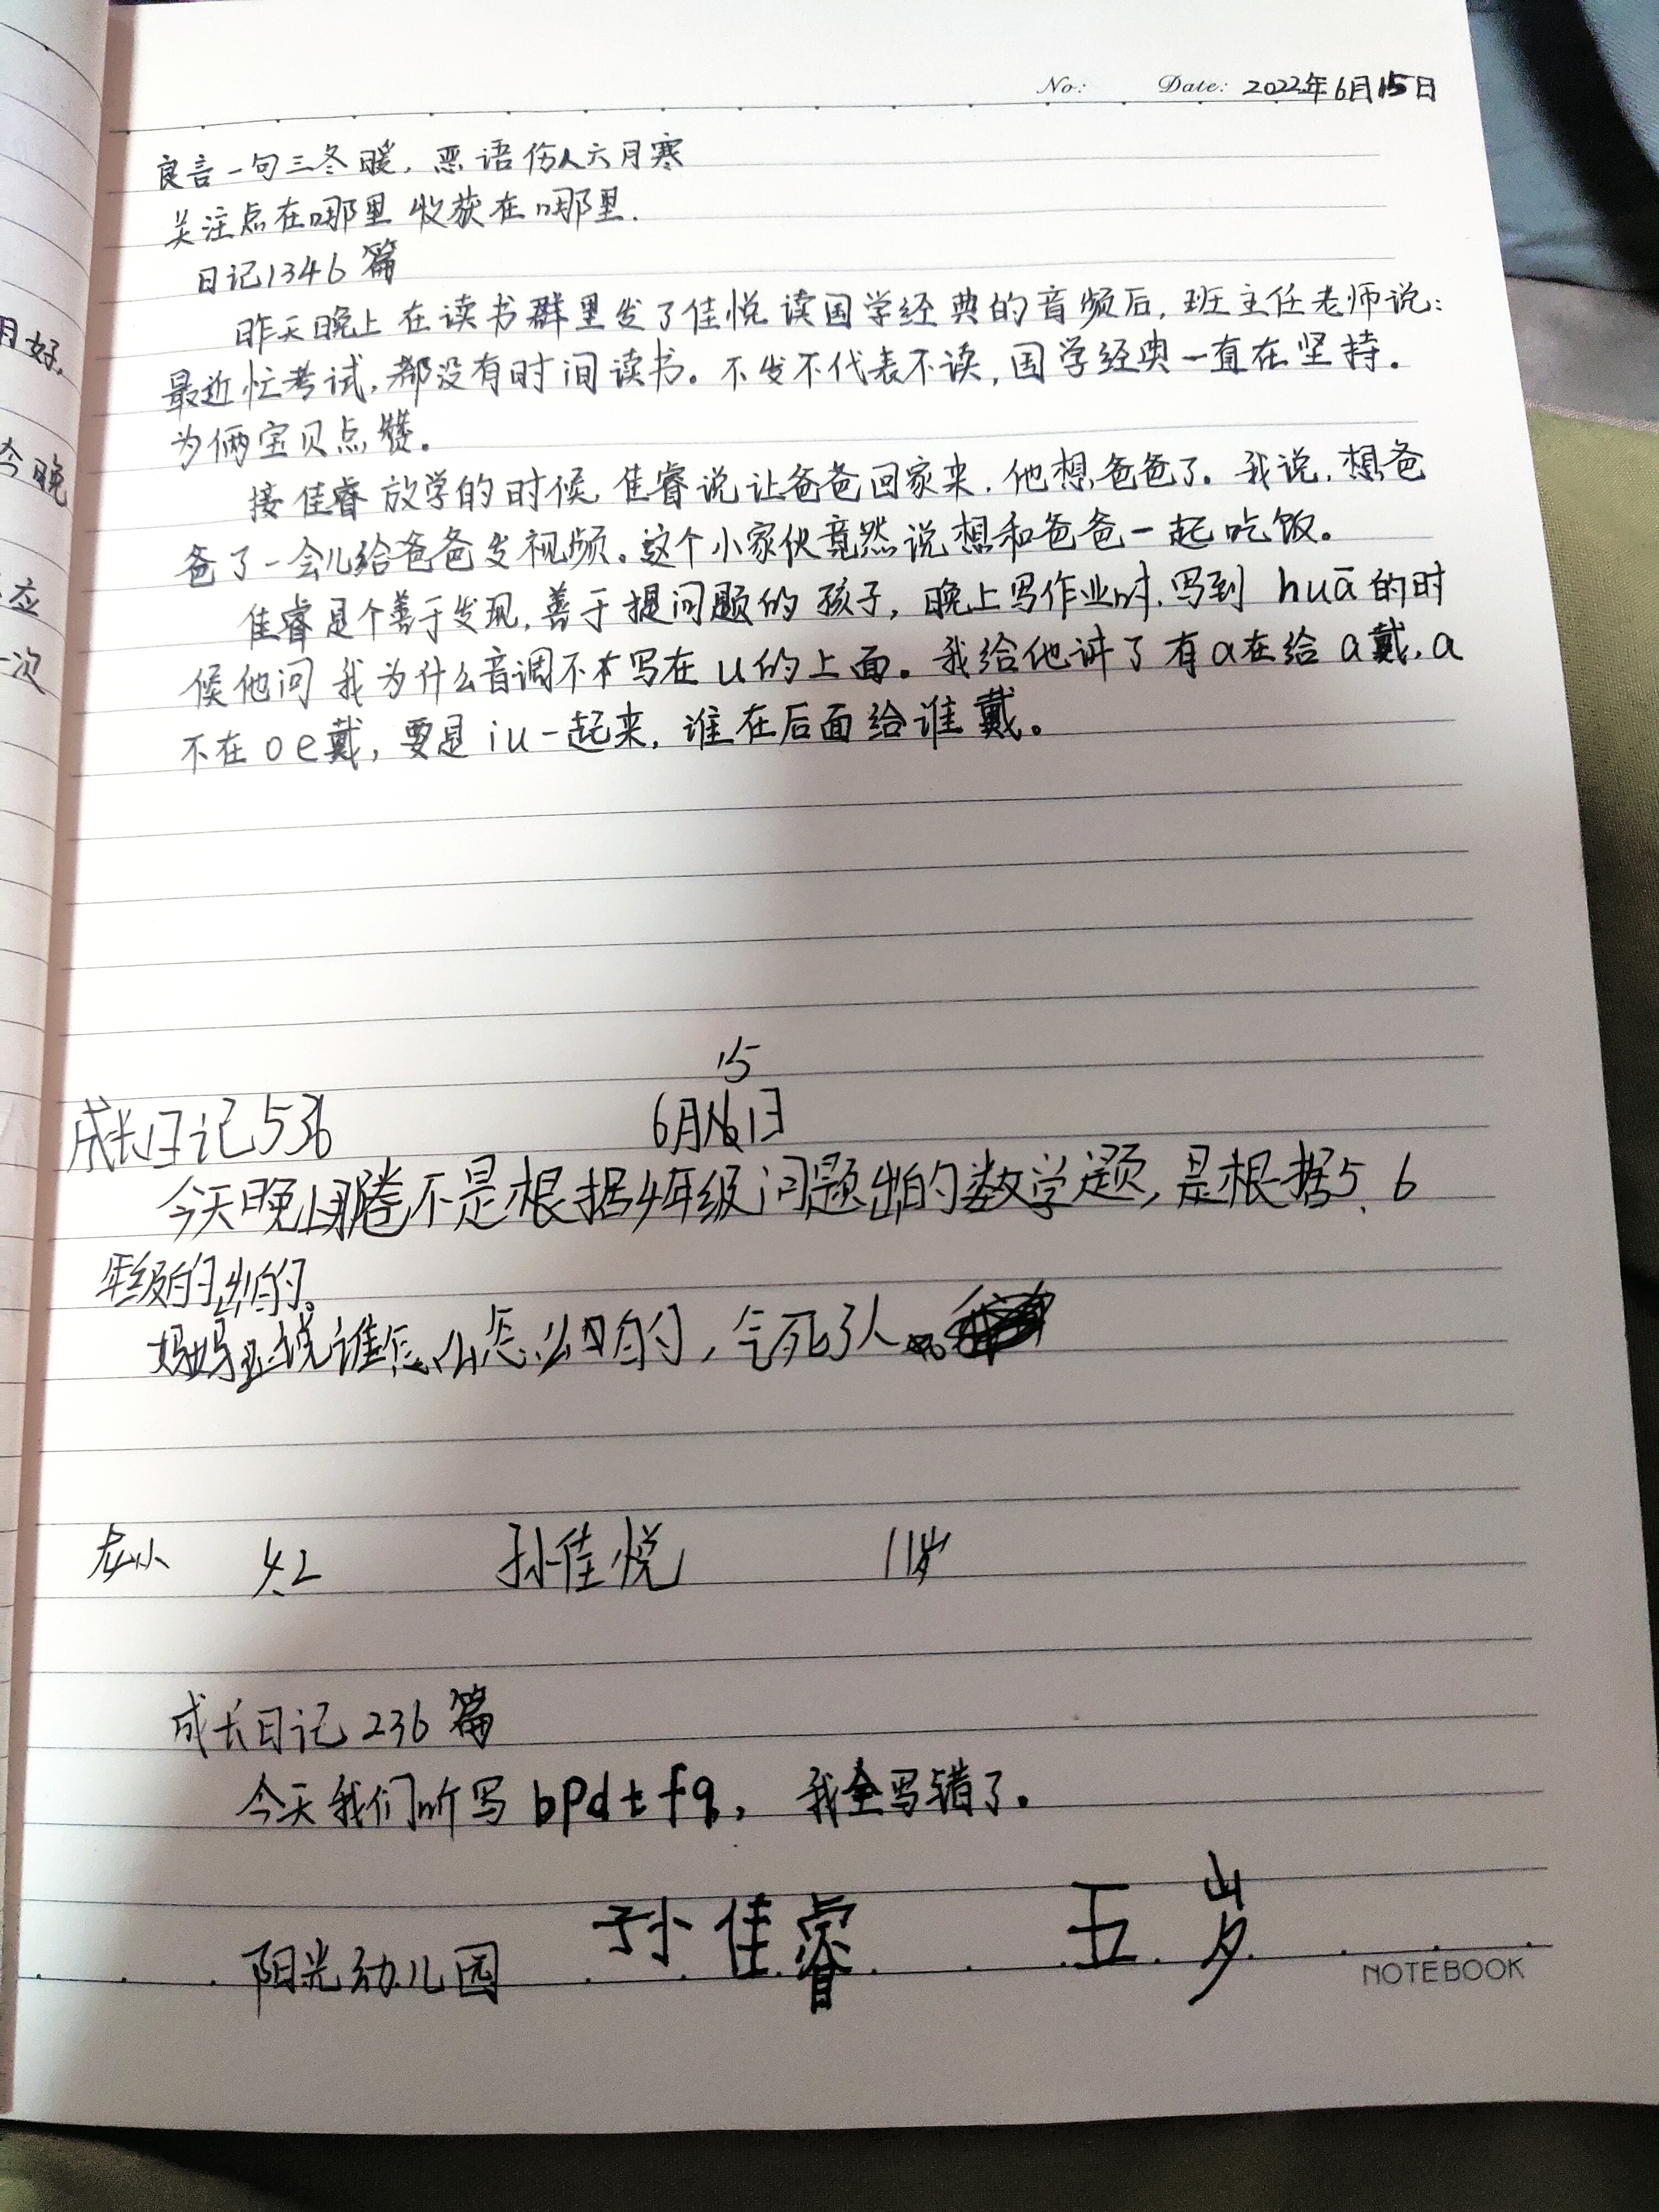 No: Date: 2022年6月15日
良言一句三冬暖，恶语伤人六月寒
关注点在哪里 收获在哪里.
日记1346篇
昨天晚上在读书群里发了佳悦读国学经典的音频后，班主任老师说：
最近忙考试，都没有时间读书。不发不代表不读，国学经典一直在坚持。
为俩宝贝点赞。
接佳睿放学的时候 佳睿说让爸爸回家来，他想爸爸了。我说，想爸
爸了一会儿给爸爸发视频。这个小家伙竟然说想和爸爸一起吃饭。
佳睿是个善于发现，善于提问题的孩子，晚上写作业时，写到 huā 的时
候他问我为什么音调不写在u的上面。我给他讲了有a在给a戴，a
不在o e戴，要是iu一起来，谁在后面给谁戴。
15
成长日记536 6月日
今天晚上不是根据4年级问题出的数学题，是根据5、6
年级的出的。
妈妈说谁怎么怎么的，气死了人
龙小 4.2 孙佳悦 11岁
成长日记236篇
今天我们听写bpdtfq，我全写错了。
阳光幼儿园 孙佳睿 五岁
NOTEBOOK
月好，
今晚
应
一次